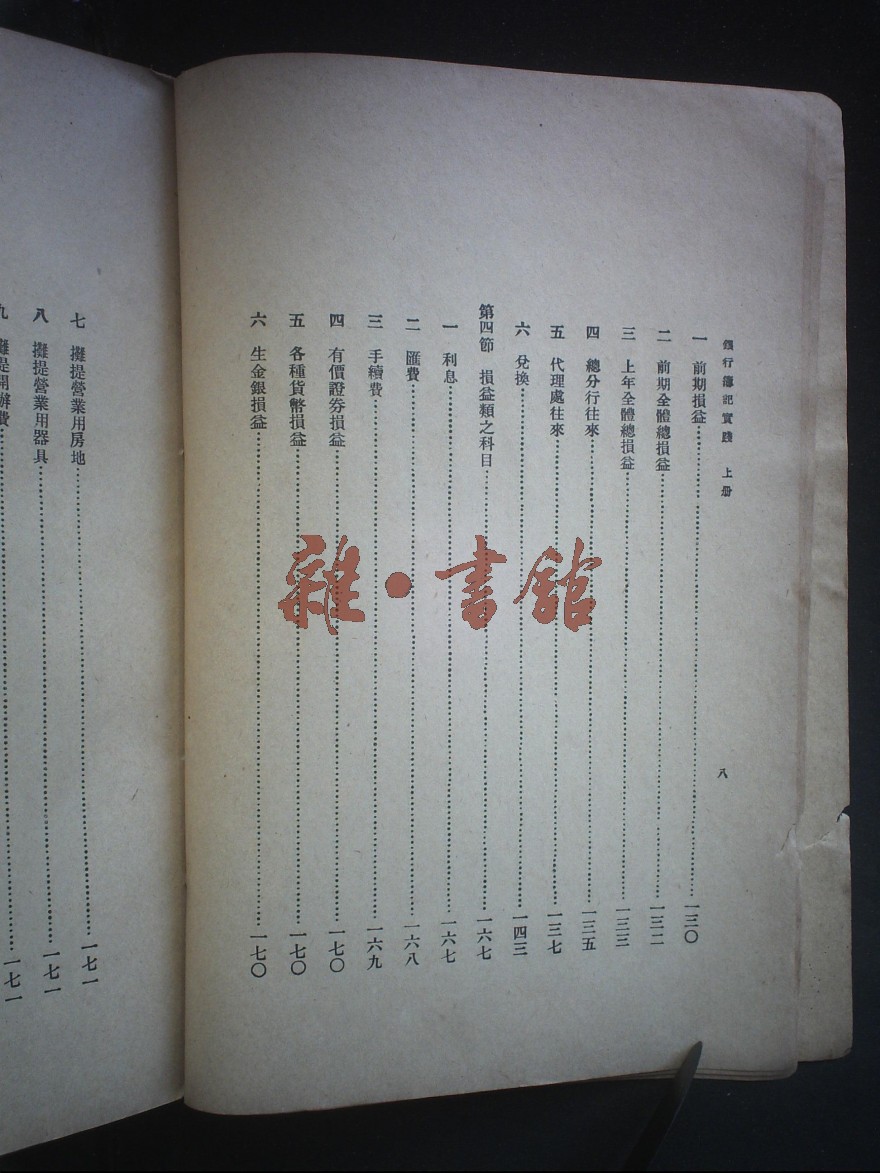 銀行簿記實踐 上册
八
一 前期損益…………一三〇
二 前期全體總損益…………一三二
三 上年全體總損益…………一三三
四 總分行往來…………一三五
五 代理處往來…………一三七
六 兌換…………一四三
第四節 損益類之科目…………一六七
一 利息…………一六七
二 匯費…………一六八
三 手續費…………一六九
四 有價證券損益…………一七〇
五 各種貨幣損益…………一七〇
六 生金銀損益…………一七〇
七 攤提營業用房地…………一七一
八 攤提營業用器具…………一七一
九 攤提開辦費…………一七一
雜·書館